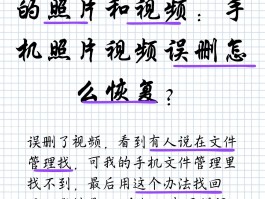 的照片和视频：手
机照片视频误删怎
么恢复？
误删了视频，看到有人说在文件
管理找，可我的手机文件管理里
找不到，最后用这个办法找回